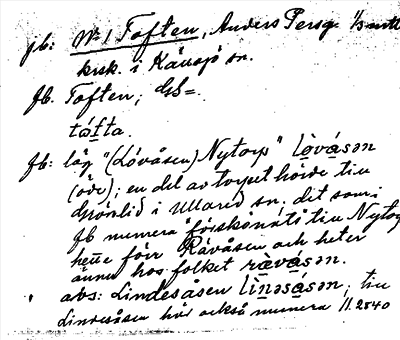 jb: No 1 Toften, Anders Persg. 1/3 mtl
krk. i Källsjö sn.
Jb. Toften; GS=
táfta.
Jb: låg "(Lövåsen) Nytorp" lòvásən
(öde); en del av torpet hörde till
Grönlid i Ullared sn; dit som
Jb numera till Nytorp
hette förr Rävåsen och heter
ännu hos folket rævásən.
abs: Lindesåsen línəsásən; till
Lindesåsen hör också numera 11.2540